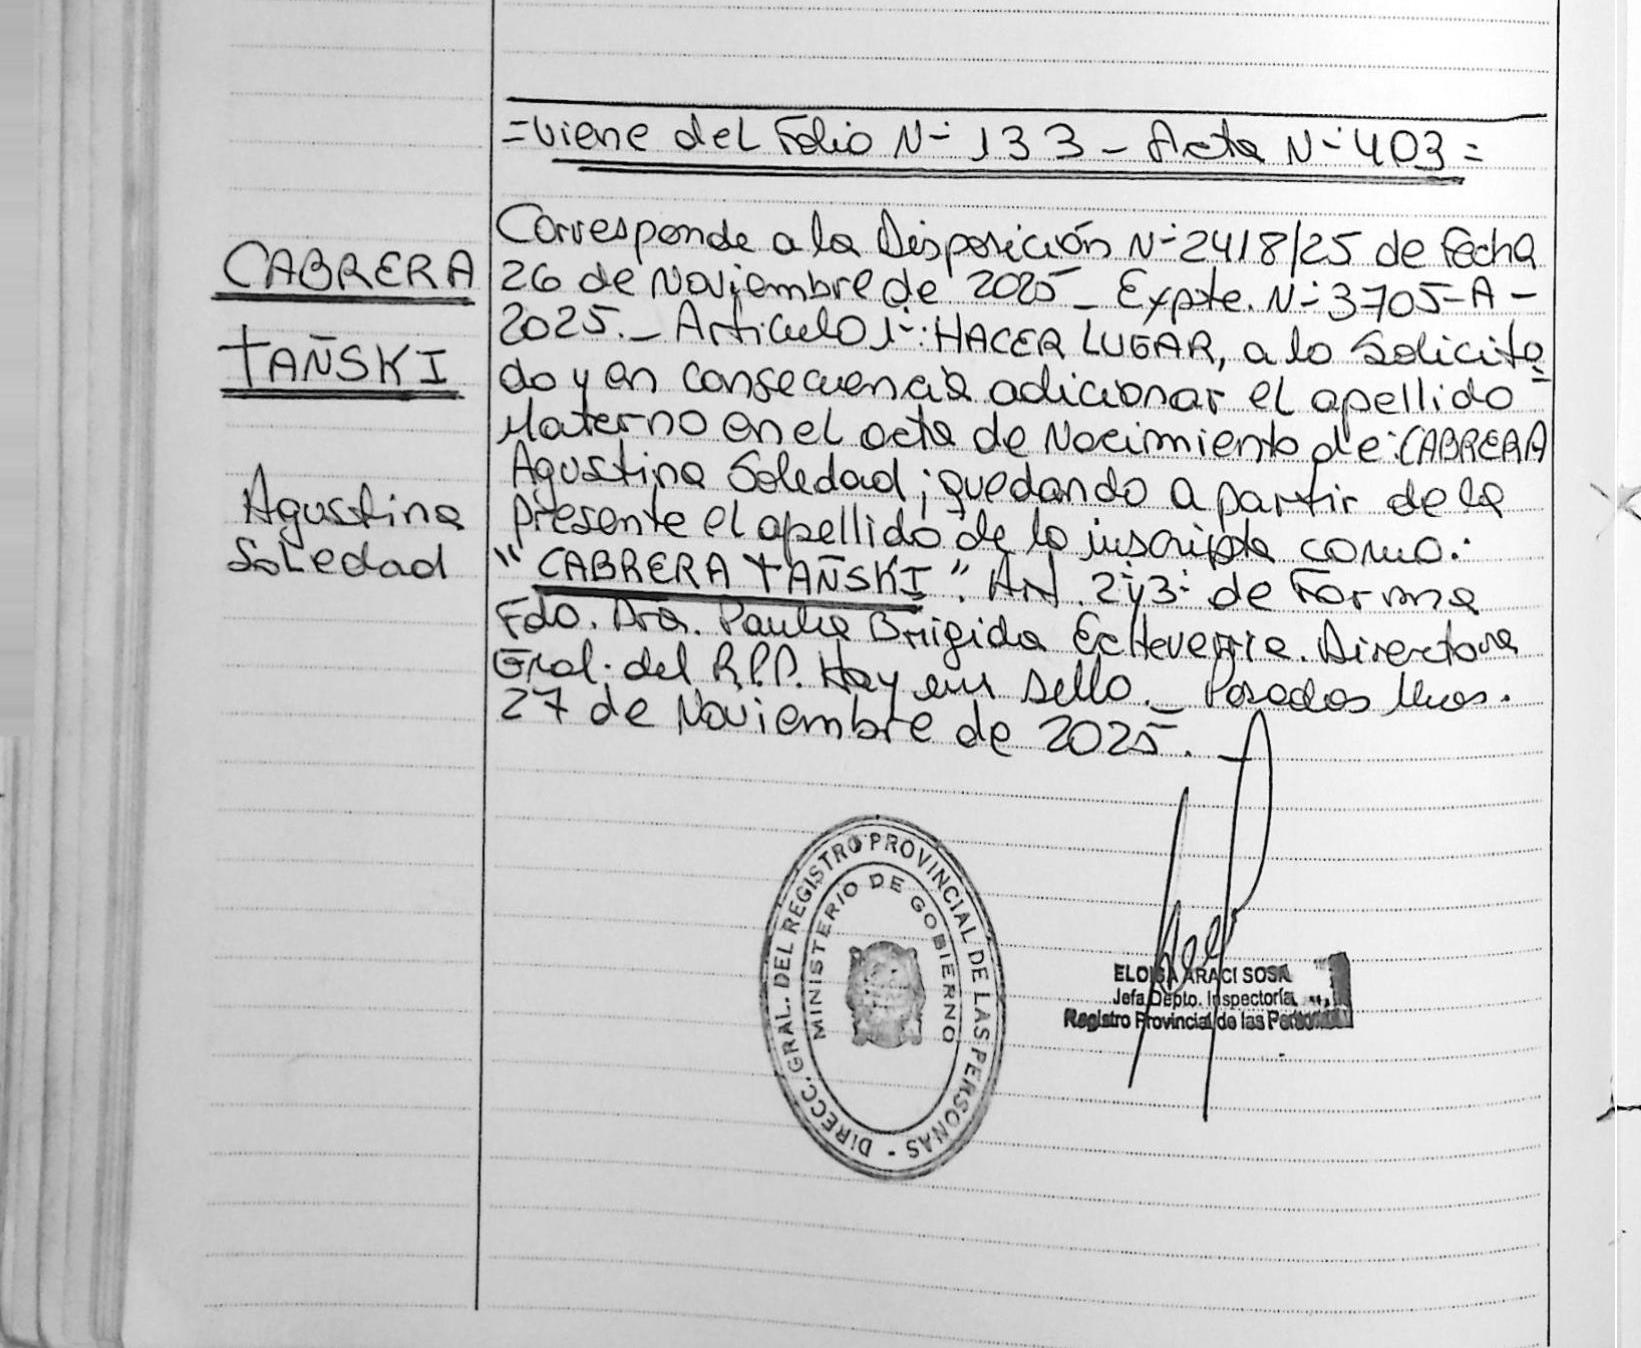 =Viene del Folio N- 133 - Acta N- 403=
CABRERA
TAÑSKI
Agustina
Soledad
Corresponde a la Disposición N-2418/25 de fecha
26 de Noviembre de 2025_ Expte. N-3705-A-
2025._ Articulo 1-: HACER LUGAR, a lo Solicita=
do y en consecuencia adicionar el apellido
Materno en el acta de Nacimiento de: CABRERA
Agustina Soledad; quedando a partir de la
presente el apellido de la inscripta como:
"CABRERA TAÑSKI". Art. 2y3- de Forma
Fdo. Dra. Paula Brigida Echeverria. Directora
Gral. del R.P.P. Hay un sello._ Posadas Mnes.
27 de Noviembre de 2025.
DIRECC. GRAL. DEL REGISTRO PROVINCIAL DE LAS PERSONAS -
MINISTERIO DE GOBIERNO
ELOISA ARACI SOSA
Jefa Depto. Inspectoría
Registro Provincial de las Personas